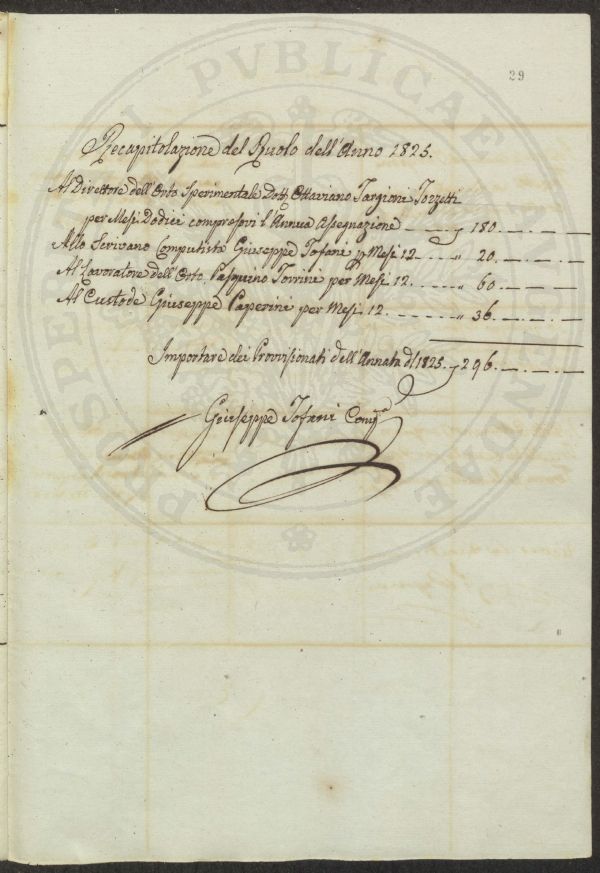 29
PROSPERITATI PVBLICAE AUGENDAE
Recapitolazione del Ruolo dell'Anno 1825.
Al Direttore dell'Orto Sperimentale Dott. Ottaviano Targioni Tozzetti
per Mesi Dodici compresovi l'Annua Assegnazione 180.
Allo Scrivano Computista Giuseppe Tofani p Mesi 12 " 20.
Al Lavoratore dell'Orto Pasquino Torrini per Mesi 12. " 60
Al Custode Giuseppe Paperini per Mesi 12. " 36.
Importare dei Provvisionati dell'Annata d. 1825. 296.
Giuseppe Tofani Comp.